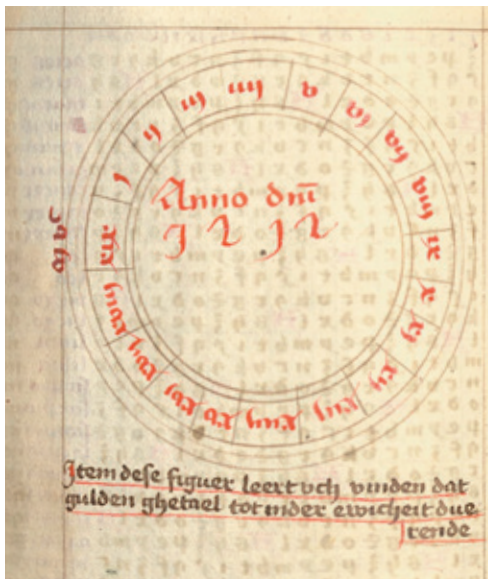 j
ij
iij
iiij
v
vj
vij
viij
ix
x
xj
xij
xiij
xiiij
xv
xvj
xvij
xviij
xix
Anno dm̄
1 2 1 2
Item dese figuer leert vch vinden dat
gulden ghetael tot inder ewicheit due
rende